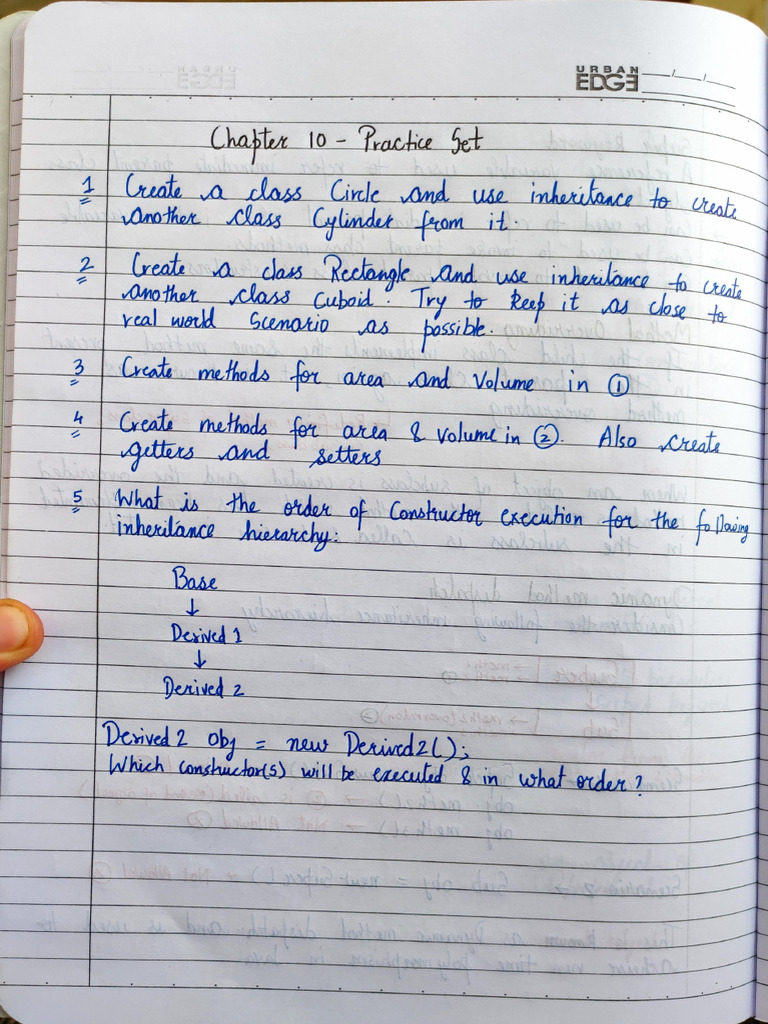 URBAN
EDGE
Chapter 10 - Practice Set
1 Create a class Circle and use inheritance to create
another class Cylinder from it.
2 Create a class Rectangle and use inheritance to create
another class Cuboid. Try to keep it as close to
real world Scenario as possible.
3 Create methods for area and volume in ①
4 Create methods for area & volume in ②. Also create
getters and setters
5 What is the order of Constructor execution for the following
inheritance hierarchy:
Base
↓
Derived 1
↓
Derived 2
Derived2 obj = new Derived2();
Which constructor(s) will be executed & in what order?